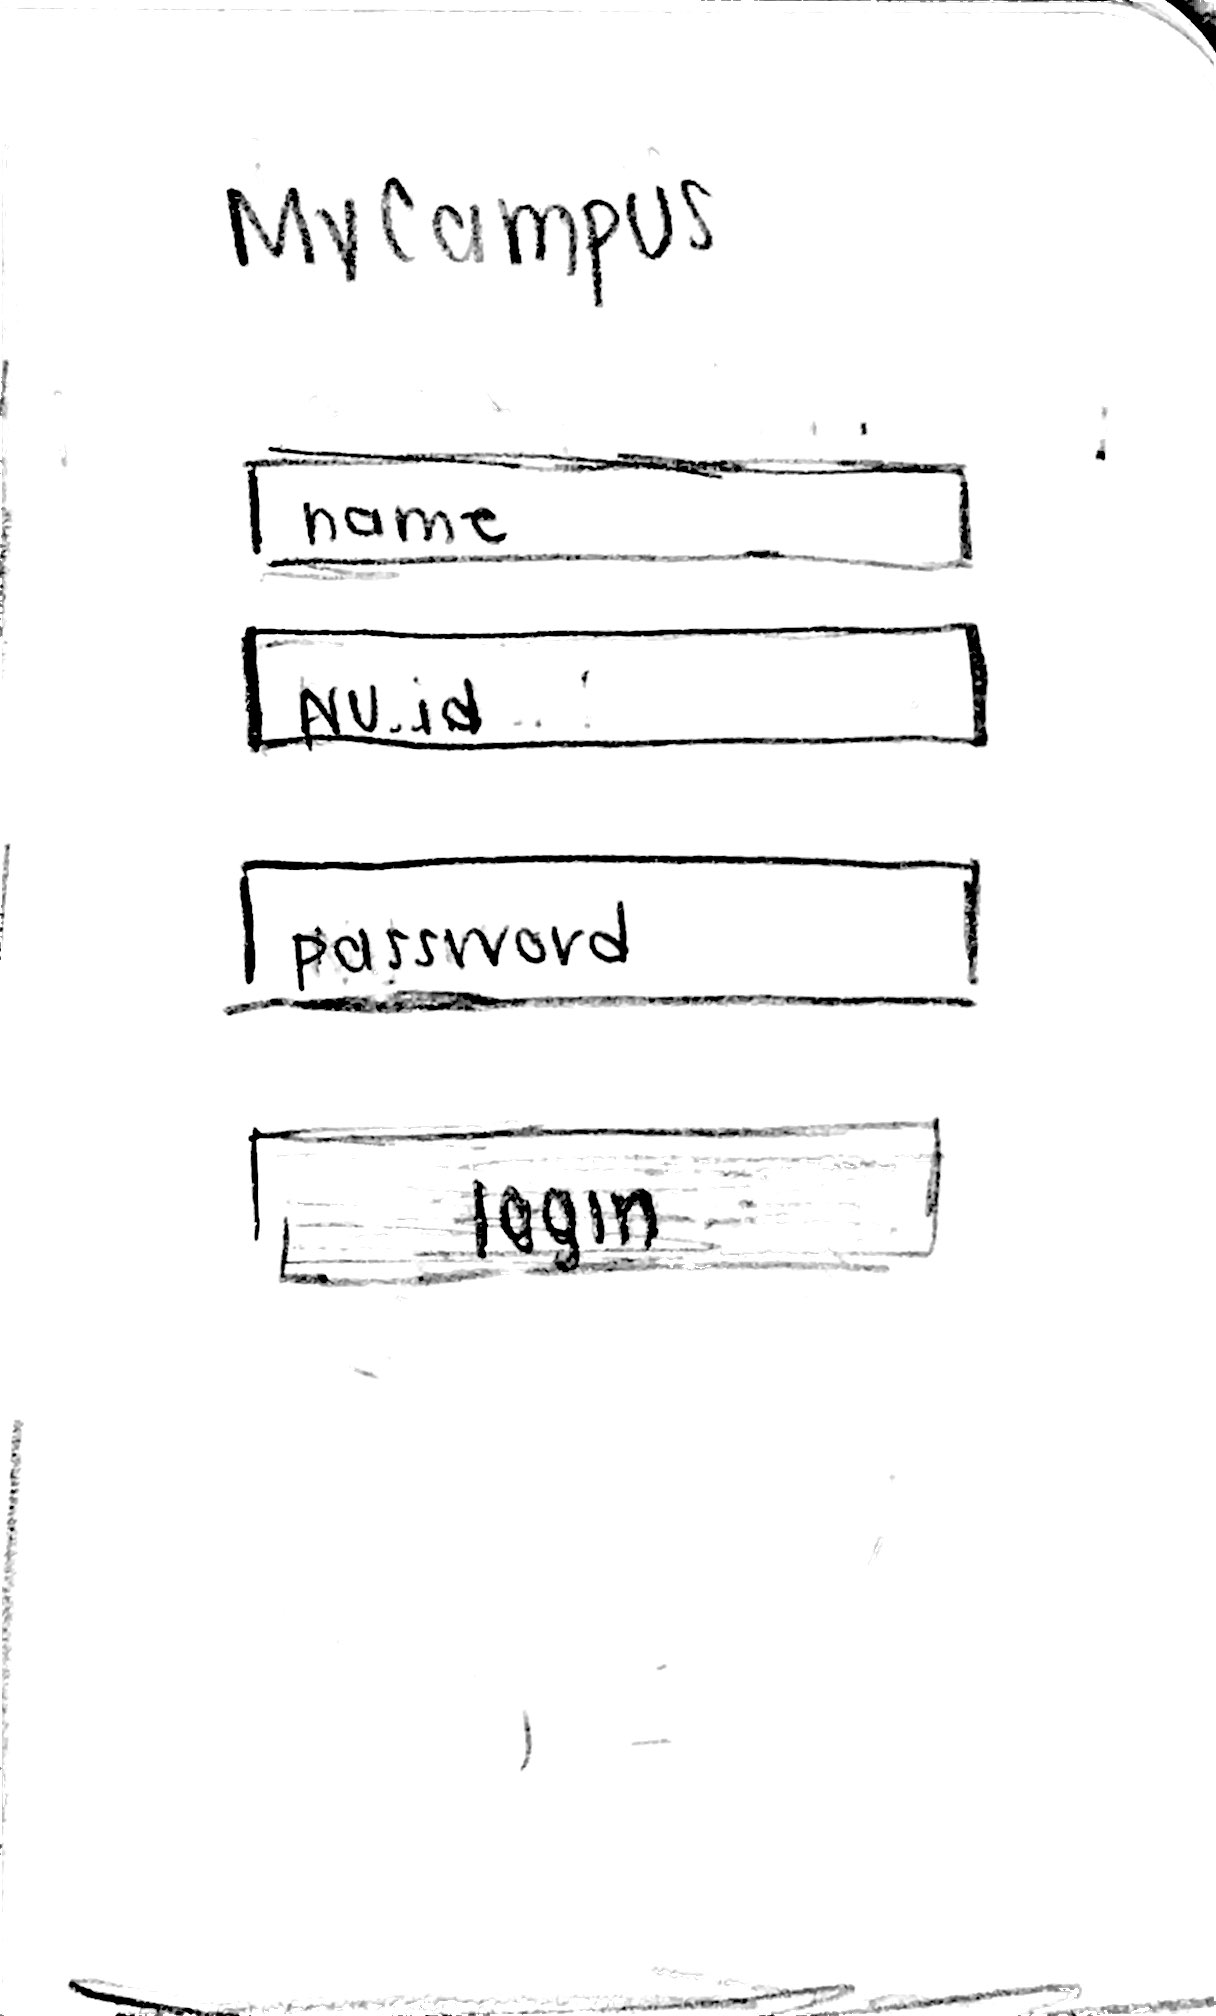 MyCampus
name
NU.id
password
login